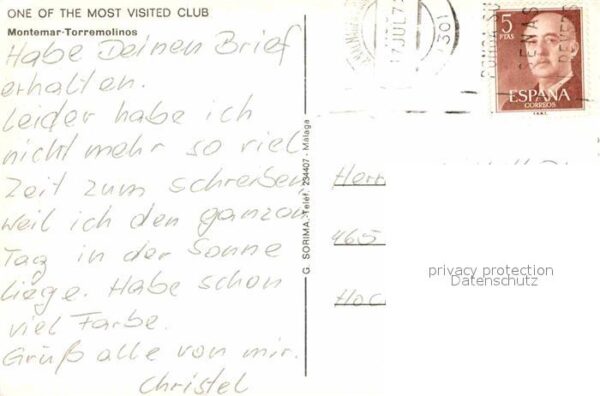 ONE OF THE MOST VISITED CLUB
Montemar-Torremolinos
Habe Deinen Brief
erhalten.
Leider habe ich
nicht mehr so viel
Zeit zum schreiben
weil ich den ganzen
Tag in der Sonne
liege. Habe schon
viel Farbe.
Grüß alle von mir.
Christel
G. SORIMA. - Teléf. 234407 - Málaga
17 JUL 7
301
5
PTAS
ESPAÑA
CORREOS
Herr
465
Hoc
privacy protection
Datenschutz